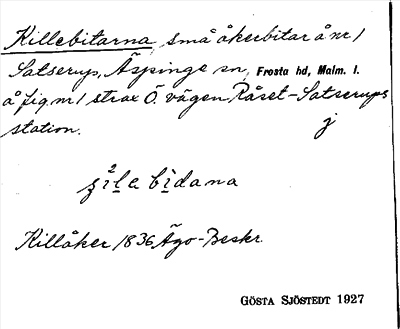 Killebitarna, små åkerbitar å nr 1
Satserup, Äspinge sn, Frosta hd, Malm. l.
å fig. nr 1 strax Ö. vägen Råset-Satserups
station. j
bidana
Killåker 1836 Ägo-Beskr.
GÖSTA SJÖSTEDT 1927